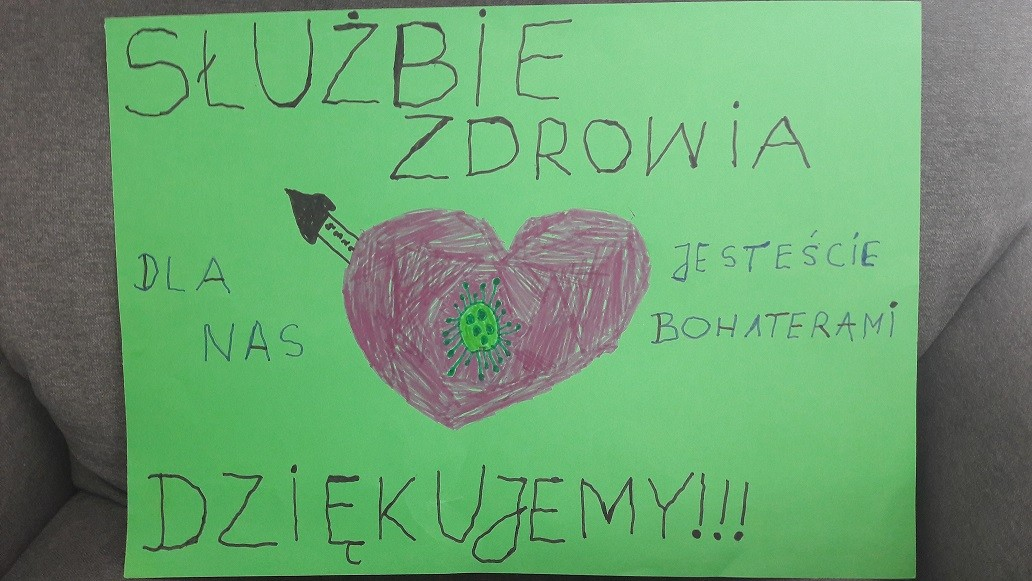 SŁUŻBIE
ZDROWIA
DLA
NAS
JESTEŚCIE
BOHATERAMi
DZIĘKUJEMY!!!